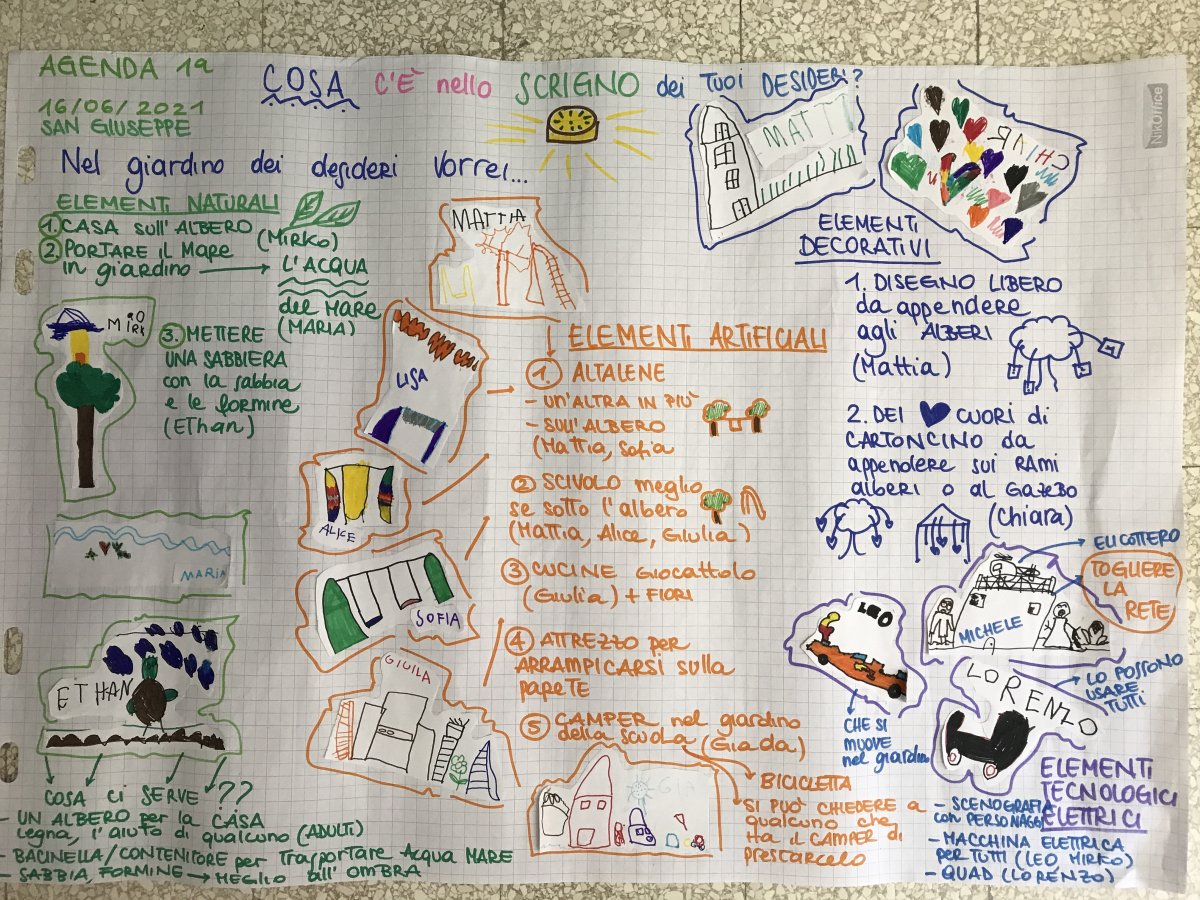 AGENDA 1a
16/06/2021
SAN GIUSEPPE
COSA C'È nello SCRIGNO dei TUOI DESIDERI?
NikOffice
Nel giardino dei desideri vorrei...
ELEMENTI NATURALI
1. CASA sull'ALBERO (MIRKO)
2 PORTARE il MARE
in giardino → L'ACQUA
del MARE
(MARIA)
3. METTERE
UNA SABBIERA
con la sabbia
e le formine
(EThan)
MIRKO
MARIA
ETHAN
COSA Ci SERVE ??
- UN ALBERO per la CASA
legna, l'aiuto di qualcuno (ADULTI)
- BACINELLA/CONTENITORE per Trasportare Acqua MARE
- SABBIA, FORMINE → MEGLIO all'OMBRA
MATTIA
LISA
ALICE
SOFIA
GIULIA
ELEMENTI ARTIFICIALI
1. ALTALENE
- UN'ALTRA IN PIÙ
- SULL'ALBERO
(Mattia, Sofia
2 SCIVOLO meglio
se sotto l'albero
(Mattia, Alice, Giulia)
3 CUCINE GIOCATTOLO
(Giulia) + FIORI
4 ATTREZZO per
ARRAMPICARSI sulla
PARETE
5 CAMPER nel giardino
della scuola (Giada)
BICICLETTA
SI PUÒ CHIEDERE a
qualcuno che
ha il CAMPER di
prestarcelo
MATTI
CHIAR
ELEMENTI
DECORATIVI
1. DISEGNO LIBERO
da appendere
agli ALBERI
(Mattia)
2. DEI CUORI di
CARTONCINO da
appendere sui RAMI
alberi o al GAZEBO
(Chiara)
ELICOTTERO
TOGLIERE
LA
RETE
MICHELE
LEO
LORENZO
LO POSSONO
USARE
TUTTI
CHE SI
MUOVE
nel giardino
ELEMENTI
TECNOLOGICI
ELETTRICI
- SCENOGRAFIA
con PERSONAGGI
- MACCHINA ELETTRICA
per TUTTI (LEO, MIRKO)
- QUAD (LORENZO)